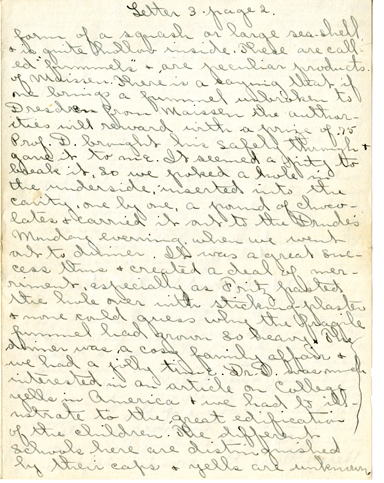 Letter 3 page 2.
form of a squash or large sea-shell,
& is quite hollow inside. These are call-
ed "fummels" & are peculiar products
of Maissen. There is a saying that if
one brings a fummel unbroken to
Dresden from Maissen the author-
ities will reward with a prize of 75
Prof. D. brought his safely through &
gave it to me. It seemed a pity to
break it, so we poked a hole in
the underside, inserted into the
cavity, one by one, a pound of choco-
lates & carried it out to the Drudes
Monday evening when we went
out to dinner. It was a great suc-
cess this & created a deal of mer-
riment, especially as Fritz pasted
the hole over with sticking-plaster
& none could guess why the fragile
fummel had grown so heavy. The
dinner was a cosy family affair &
we had a jolly time. Dr. D. was much
interested in an article on College
yells in America & we had to ill-
ustrate to the great edification
of the children. The different
schools here are distinguished
by their caps & yells are unknown